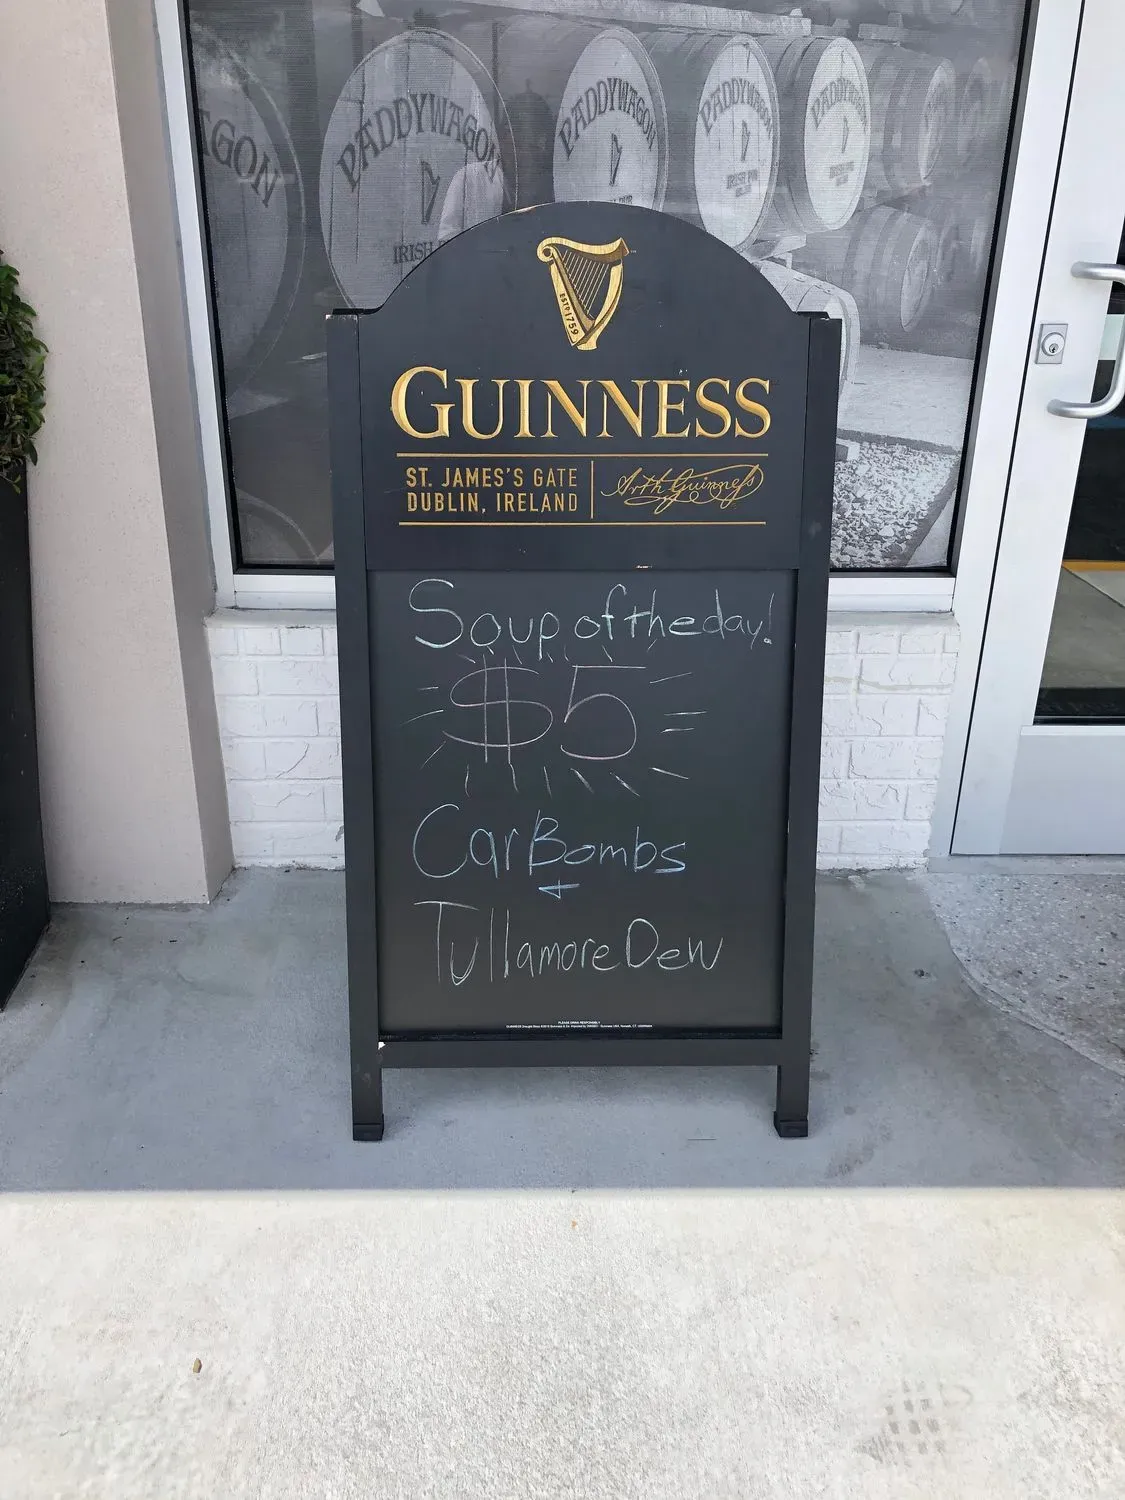 GON
PADDYWAGON
IRISH P
PADDYWAGON
PUB
PADDYWAGON
IRISH PUB
PADDYWAGON
ESTD 1759
GUINNESS
ST. JAMES'S GATE
DUBLIN, IRELAND
Arth Guinness
Soup of the day!
$5
Car Bombs
+
Tullamore Dew
PLEASE DRINK RESPONSIBLY